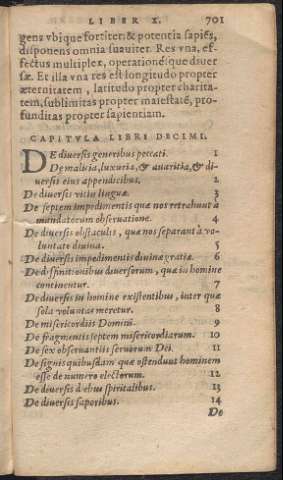 LIBER X. 701
gens vbique fortiter: & potentia sapiẽs,
disponens omnia suauiter. Res vna, ef-
fectus multiplex, operationésque diuer
sæ. Et illa vna res est longitudo propter
æternitatem, latitudo propter charita-
tem, sublimitas propter maiestatẽ, pro-
funditas propter sapientiam.
CAPITVLA LIBRI DECIMI.
DE diuersis generibus peccati. 1
De malicia, luxuria, & auaritia, & di-
uersis eius appendicibus. 2
De diuersis vitiis linguæ. 3
De septem impedimentis quæ nos retrahunt à
mandatorum obseruatione. 4
De diuersis obstaculis, quæ nos separant à vo-
luntate diuina. 5
De diuersis impedimentis diuinæ gratiæ. 6
De diffinitionibus diuersorum, quæ in homine
continentur. 7
De diuersis in homine existentibus, inter quæ
sola voluntas meretur. 8
De misericordiis Domini. 9
De fragmentis septem misericordiarum. 10
De sex obseruantiis seruorum Dei. 11
De signis quibusdam quæ ostendunt hominem
esse de numero electorum. 12
De diuersis diebus spiritalibus. 13
De diuersis saporibus. 14
De